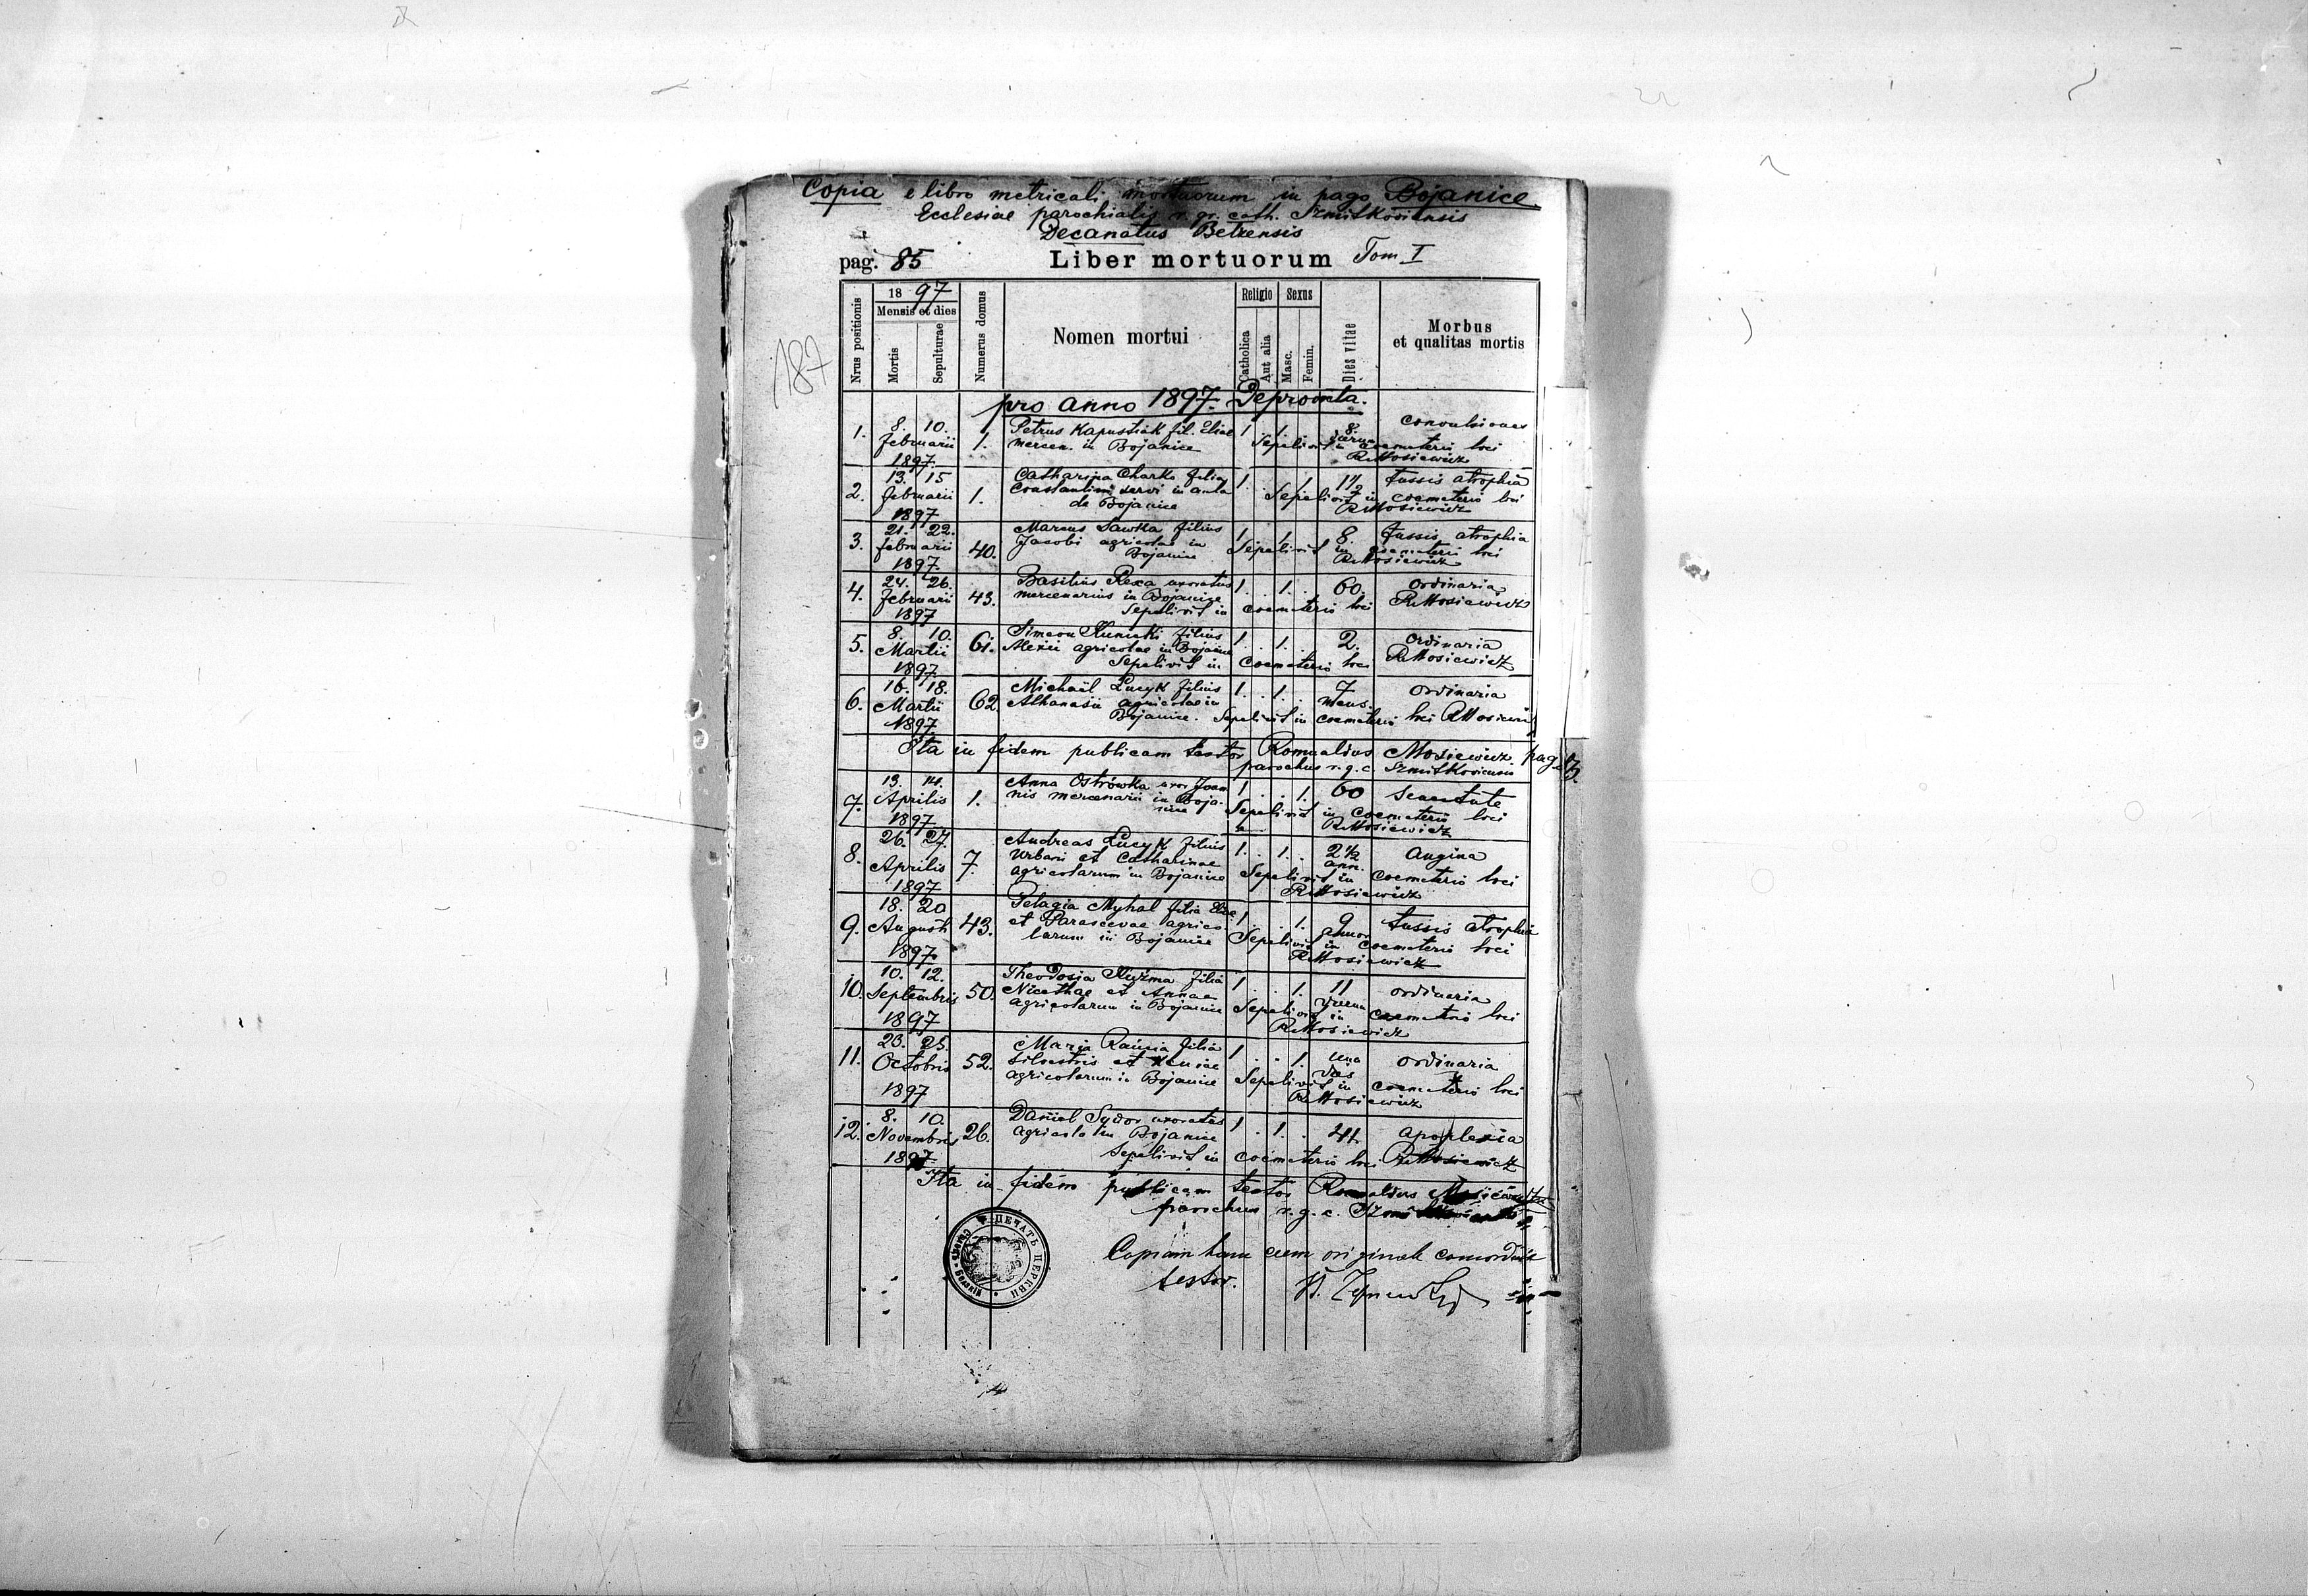 187
Copia e libro metricali mortuorum in pago Bojanice
Ecclesiae parochialis r. gr. cath. Szmitkoviensis
Decanatus Belzensis
pag. 85 Liber mortuorum Tom I
Nrus positionis
1897
Mensis et dies
Mortis
Sepulturae
Numerus domus
Nomen mortui
Religio
Catholica
Aut alia
Sexus
Masc.
Femin.
Dies vitae
Morbus
et qualitas mortis
pro anno 1897.
1. 8. 10. Februarii 1897. 1. Petrus Kapustiak fil. Eliae 1. 1. 8. convulsiones
mercen. in Bojanice Sepelivit in coemeterio loci
RMosiewicz
2. 13. 15 februarii 1897 1. Catharina Charko filia 1. 1. 1½ tussis atrophia
Constantini servi in aula Sepelivit in coemeterio loci
de Bojanice RMosiewicz
3. 21. 22. februarii 1897. 40. Marcus Sawka filius 1. 1. 8. tussis atrophia
Jacobi agricolae in Sepelivit in coemeterio loci
Bojanice RMosiewicz
4. 24. 26. Februarii 1897 43. Basilius Rexa uxoratus 1. 1. 60. ordinaria
mercenarius in Bojanice RMosiewicz
Sepelivit in coemeterio loci
5. 8. 10. Martii 1897 61. Simeon filius 1. 1. 2. ordinaria
Alexii agricolae in Bojanice RMosiewicz
Sepelivit in coemeterio loci
6. 16. 18. Martii 1897. 62. Michaël Lucyk filius 1. 1. 7 mens. ordinaria
Athanasii agricolae in
Bojanice. Sepelivit in coemeterio loci RMosiewicz
Ita in fidem publicam testor Romualdus Mosiewicz pag.
parochus r. g. c. Szmitkoviensis
7. 13. 14. Aprilis 1897 1. Anna Ostrówka uxor Joan 1. 1. 60 senectute
nis mercenarii in Boja- Sepelivit in coemeterio loci
nice RMosiewicz
8. 26. 27. Aprilis 1897 7. Andreas Lucyk filius 1. 1. 2½ ann. angina
Urbani et Catharinae
agricolarum in Bojanice Sepelivit in coemeterio loci
RMosiewicz
9. 18. 20 Augusti 1897. 43. Pelagia Myhal filia Eliae 1. 1. 9 tussis atrophia
et Parascevae agrico
larum in Bojanice Sepelivit in coemeterio loci
RMosiewicz
10. 10. 12. Septembris 1897 50. Theodosia Kuźma filia 1. 1. 11 dierum ordinaria
Nicethae et Annae
agricolarum in Bojanice Sepelivit in coemeterio loci
RMosiewicz
11. 23. 25. Octobris 1897 52. Maria filia 1. 1. una dies ordinaria
Silvestris et Xeniae
agricolarum in Bojanice Sepelivit in coemeterio loci
RMosiewicz
12. 8. 10. Novembris 1897 26. Daniel Sydor uxoratus 1. 1. 41. apoplexia
agricola in Bojanice
Sepelivit in coemeterio loci RMosiewicz
Ita in fidem publicam testor Romualdus
parochus r. g. c.
ПЕЧАТЬ ЦЕРКВИ
Copiam hanc cum originale
testor.